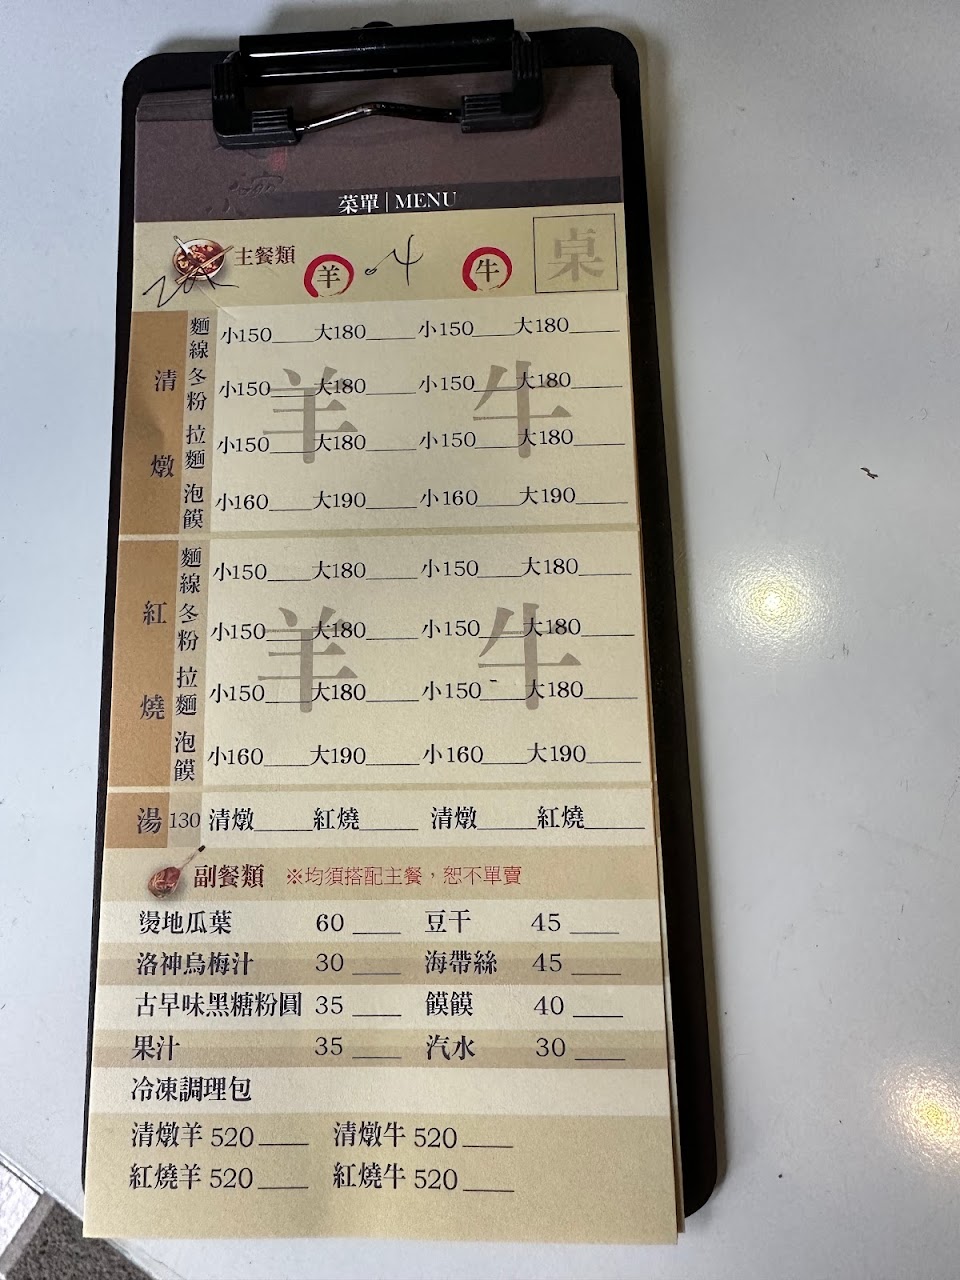 菜單 | MENU
主餐類 羊 牛 桌
清燉 羊 牛
麵線 小150____大180____ 小150____大180____
冬粉 小150____大180____ 小150____大180____
拉麵 小150____大180____ 小150____大180____
泡饃 小160____大190____ 小160____大190____
紅燒 羊 牛
麵線 小150____大180____ 小150____大180____
冬粉 小150____大180____ 小150____大180____
拉麵 小150____大180____ 小150____大180____
泡饃 小160____大190____ 小160____大190____
湯 130 清燉____紅燒____ 清燉____紅燒____
副餐類 ※均須搭配主餐,恕不單賣
燙地瓜葉 60 ____ 豆干 45 ____
洛神烏梅汁 30 ____ 海帶絲 45 ____
古早味黑糖粉圓 35 ____ 饃饃 40 ____
果汁 35 ____ 汽水 30 ____
冷凍調理包
清燉羊 520____ 清燉牛 520____
紅燒羊 520____ 紅燒牛 520____